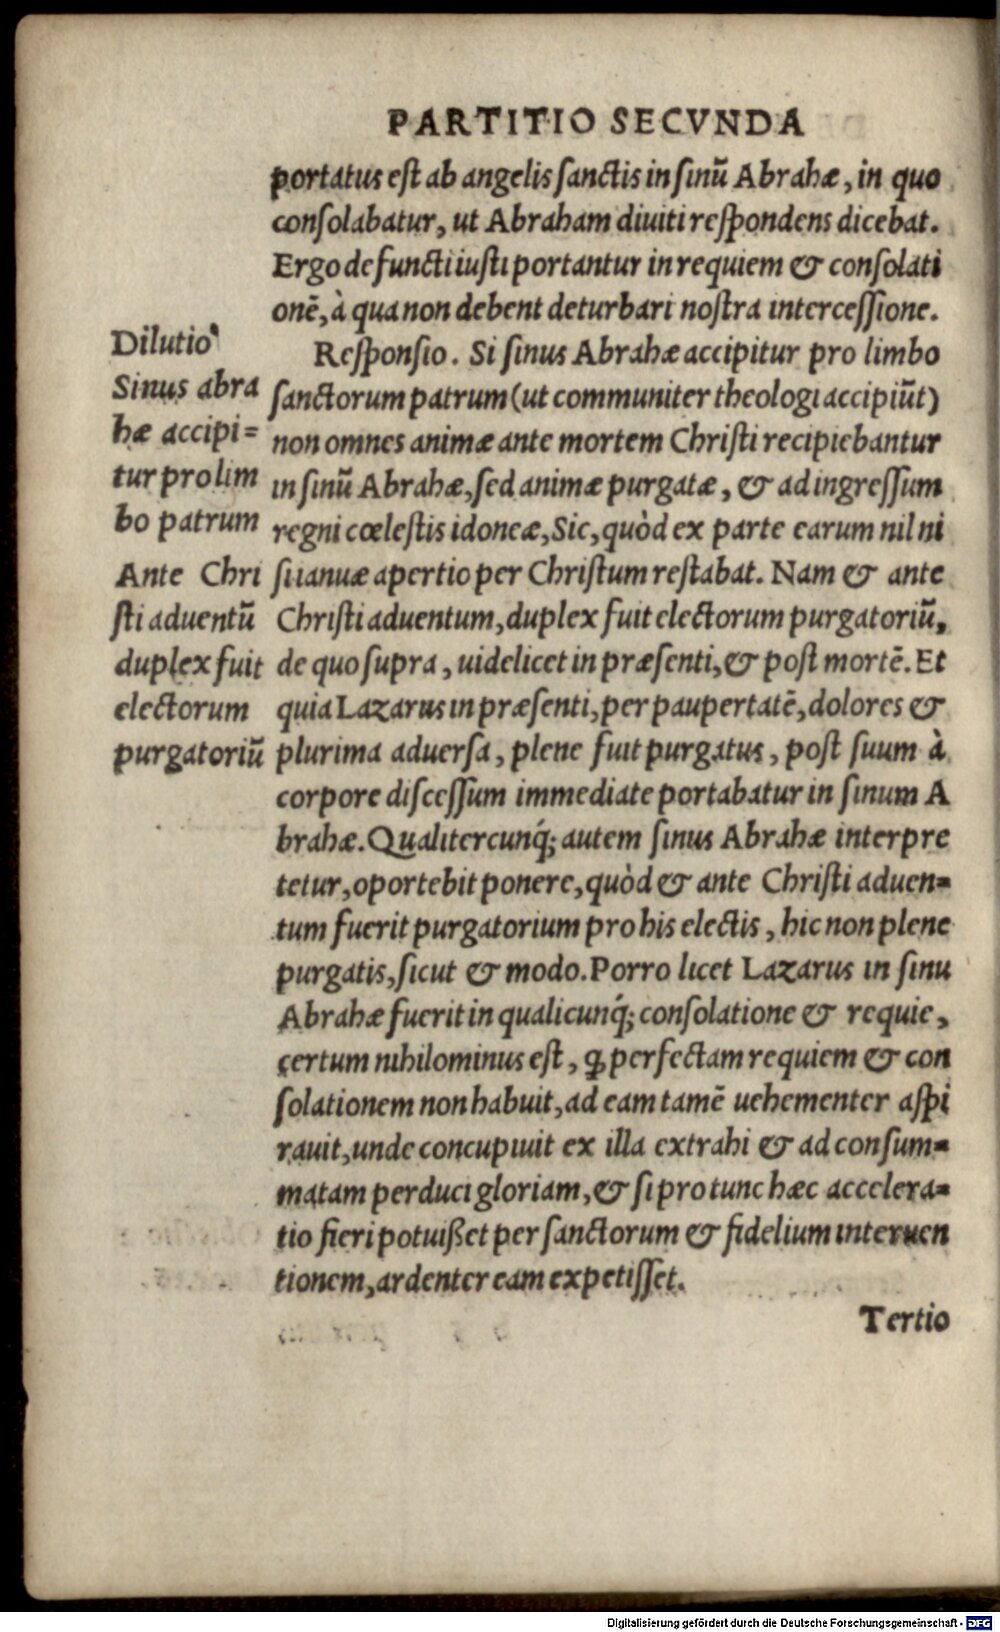 PARTITIO SECVNDA
portatus est ab angelis sanctis in sinū Abrahæ, in quo
consolabatur, ut Abraham diuiti respondens dicebat.
Ergo defuncti iusti portantur in requiem & consolati
onē, à qua non debent deturbari nostra intercessione.
Responsio. Si sinus Abrahæ accipitur pro limbo
sanctorum patrum (ut communiter theologi accipiūt)
non omnes animæ ante mortem Christi recipiebantur
in sinū Abrahæ, sed animæ purgatæ, & ad ingressum
regni cœlestis idoneæ, Sic, quòd ex parte earum nil ni
si ianuæ apertio per Christum restabat. Nam & ante
Christi aduentum, duplex fuit electorum purgatoriū,
de quo supra, uidelicet in præsenti, & post mortē. Et
quia Lazarus in præsenti, per paupertatē, dolores &
plurima aduersa, plene fuit purgatus, post suum à
corpore discessum immediate portabatur in sinum A
brahæ. Qualitercunq́; autem sinus Abrahæ interpre
tetur, oportebit ponere, quòd & ante Christi aduen=
tum fuerit purgatorium pro his electis, hic non plene
purgatis, sicut & modo. Porro licet Lazarus in sinu
Abrahæ fuerit in qualicunq́; consolatione & requie,
certum nihilominus est, ꝙ perfectam requiem & con
solationem non habuit, ad eam tamē uehementer aspi
rauit, unde concupiuit ex illa extrahi & ad consum=
matam perduci gloriam, & si pro tunc hæc accelera=
tio fieri potuißet per sanctorum & fidelium interuen
tionem, ardenter eam expetisset.
Tertio
Dilutio
Sinus abra
hæ accipi=
tur pro lim
bo patrum
Ante Chri
sti aduentū
duplex fuit
electorum
purgatoriū
Digitalisierung gefördert durch die Deutsche Forschungsgemeinschaft - DFG